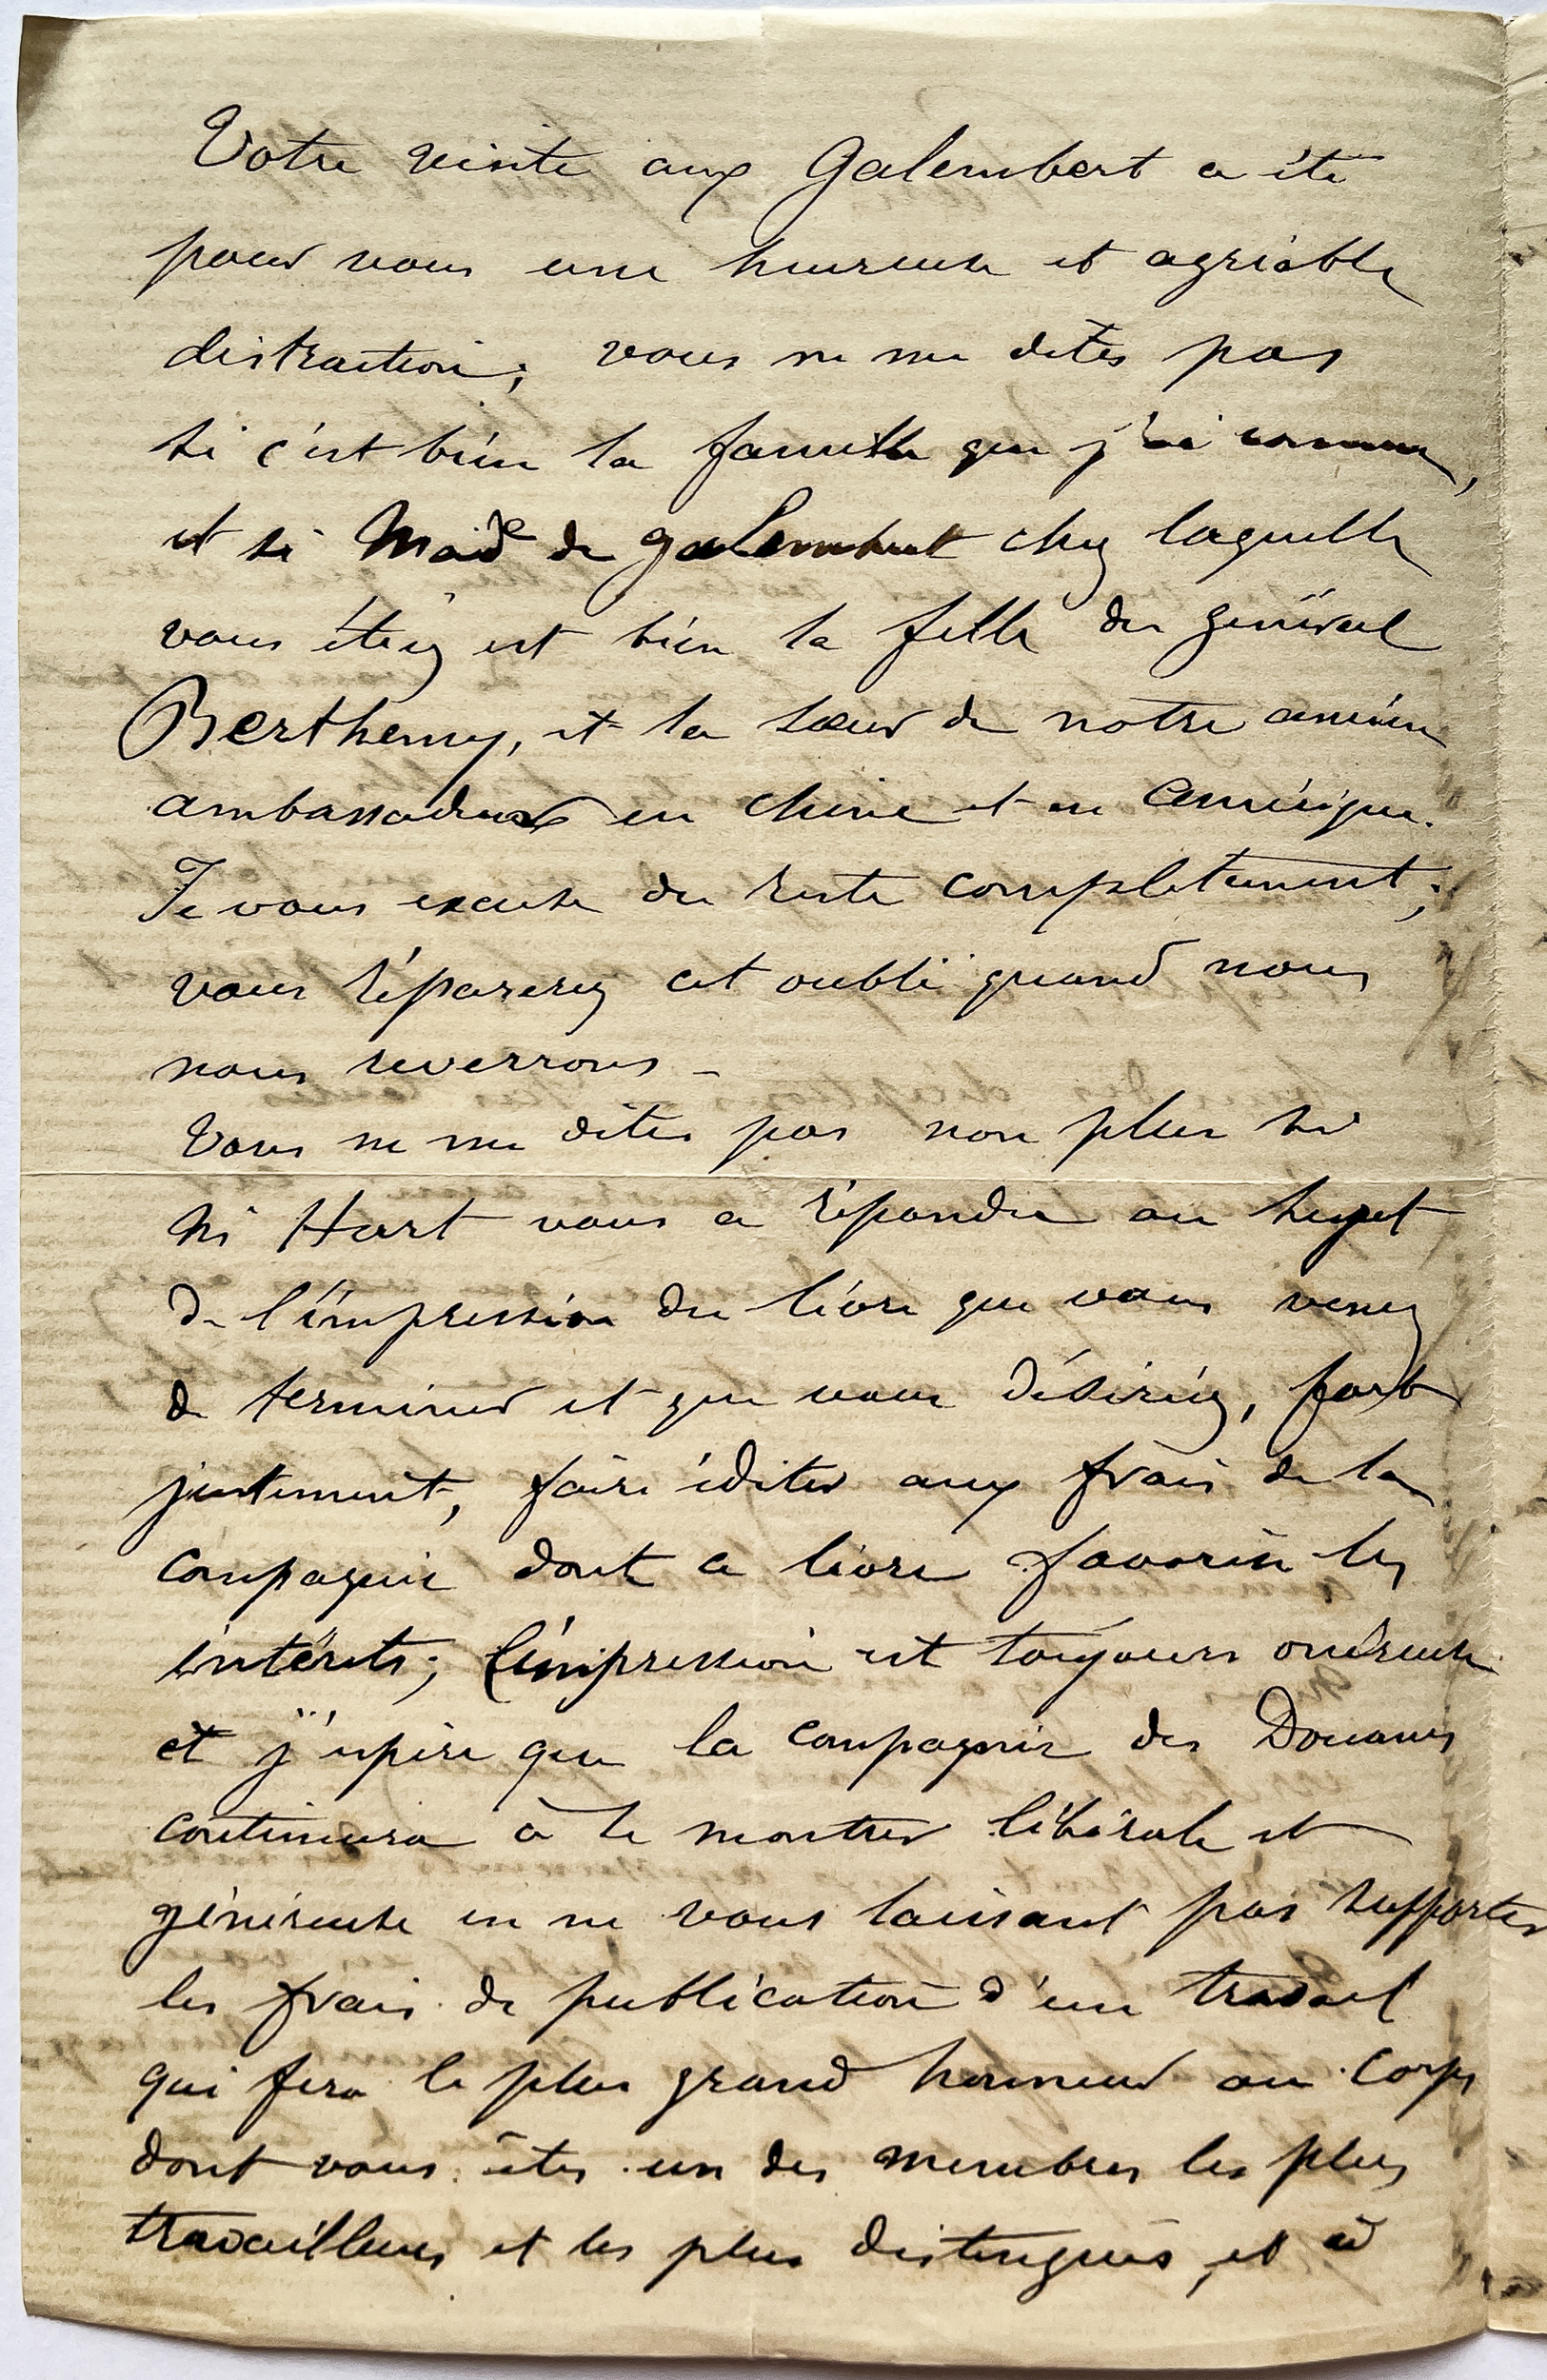 Votre visite aux Galembert a été
pour vous une heureuse et agréable
distraction; vous ne me dites pas
si c'est bien la famille que j'ai connue,
et si Made de Galembert chez laquelle
vous étiez est bien la fille du général
Berthemy, et la sœur de notre ancien
ambassadeur en Chine et en Amérique.
Je vous excuse du reste complètement;
vous réparerez cet oubli quand nous
nous reverrons -
Vous ne me dites pas non plus si
Mr Hart vous a répondu au sujet
de l'impression du livre que vous venez
de terminer et que vous désiriez, fort
justement, faire éditer aux frais de la
compagnie dont ce livre favorise les
intérêts; l'impression est toujours onéreuse
et j'espère que la compagnie des Douanes
continuera à se montrer libérale et
généreuse en ne vous laissant pas supporter
les frais de publication d'un travail
qui fera le plus grand honneur au corps
dont vous êtes un des membres les plus
travailleurs et les plus distingués, et à